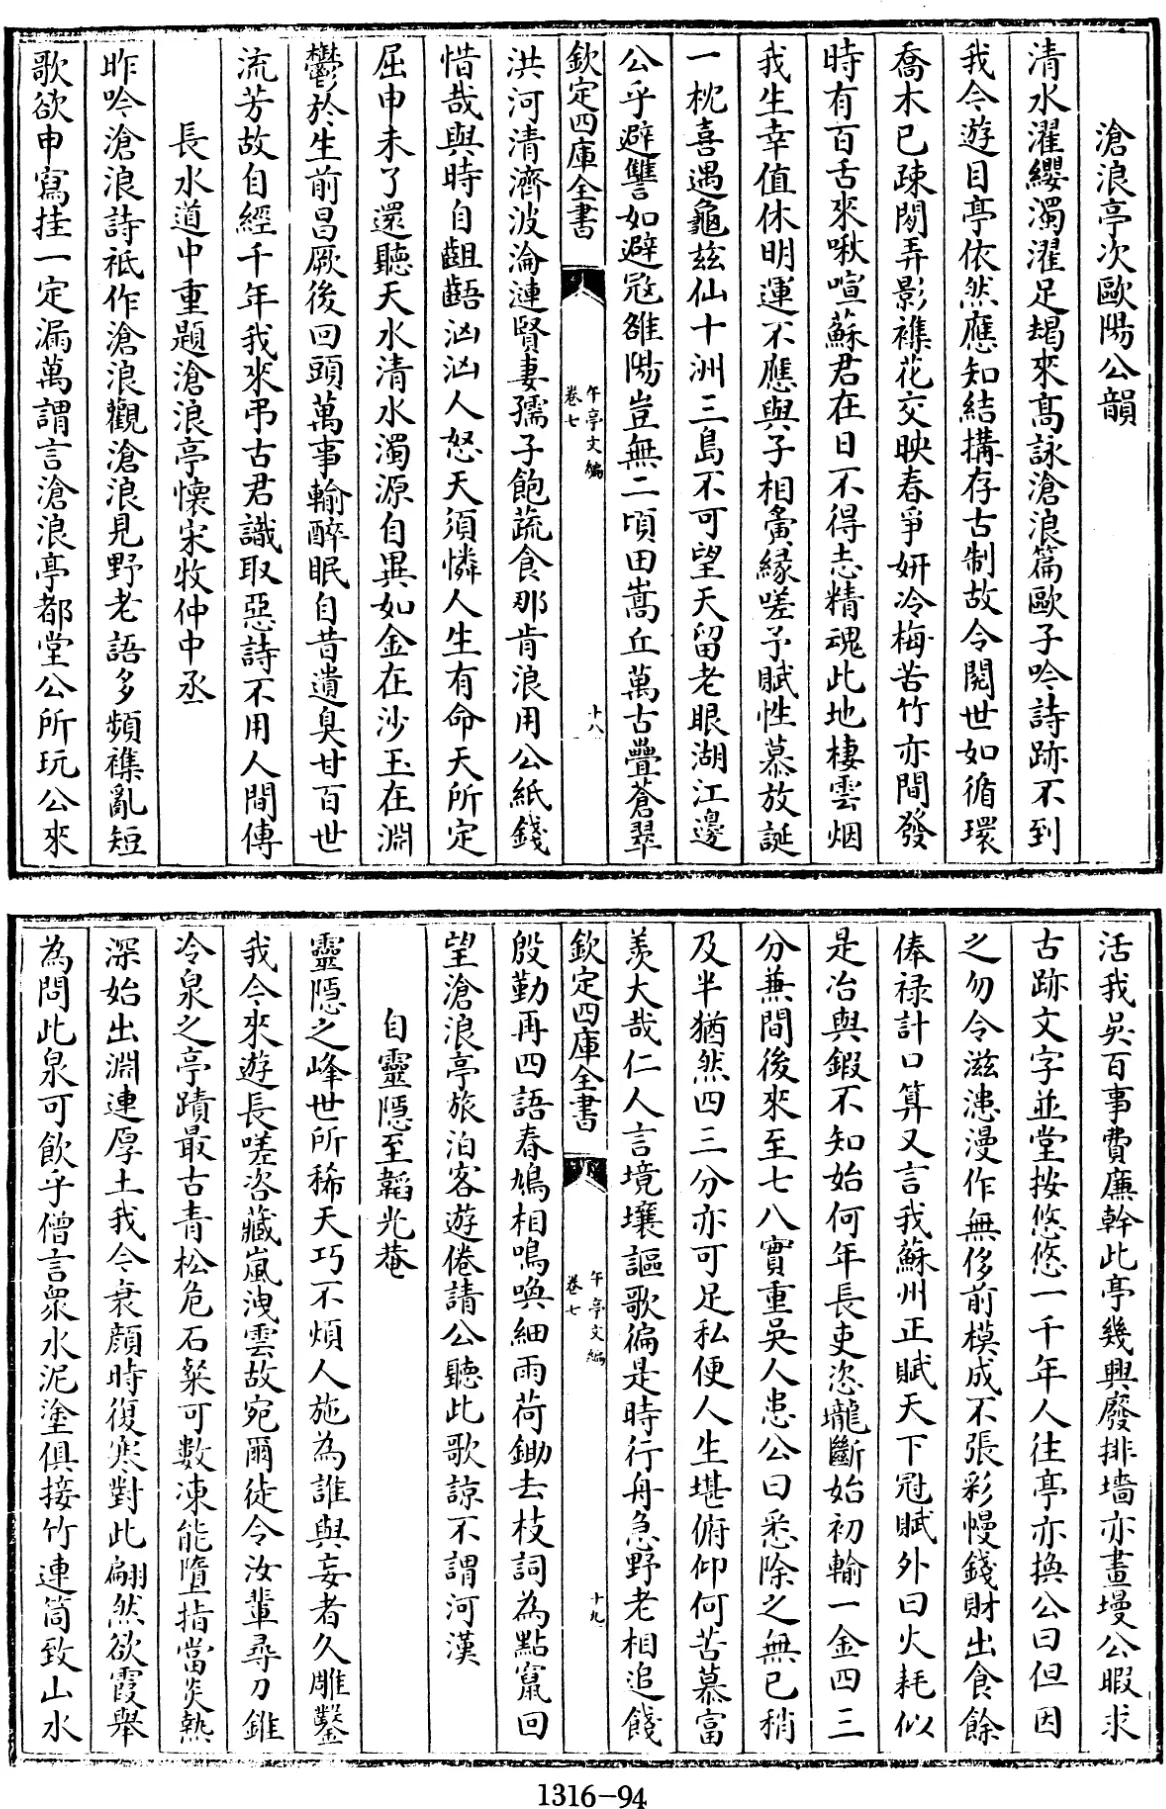 滄浪亭次歐陽公韻
清水濯纓濁濯足朅來高詠滄浪篇歐子吟詩跡不到
我今遊目亭依然應知結構存古制故令閱世如循環
喬木已疎閡弄影襍花交映春爭妍冷梅苦竹亦間發
時有百舌來啾喧蘇君在日不得志精魂此地棲雲烟
我生幸值休明運不應與子相夤緣嗟予賦性慕放誕
一枕喜遇龜兹仙十洲三島不可望天留老眼湖江邊
公乎避讐如避寇雒陽豈無二頃田嵩丘萬古疊蒼翠
欽定四庫全書
午亭文編
卷七
十八
洪河清濟波淪漣賢妻孺子飽蔬食那肯浪用公紙錢
惜哉與時自齟齬汹汹人怒天須憐人生有命天所定
屈申未了還聽天水清水濁源自異如金在沙玉在淵
鬱於生前昌厥後回頭萬事輸醉眠自昔遺臭甘百世
流芳故自經千年我來弔古君識取惡詩不用人間傳
長水道中重題滄浪亭懷宋牧仲中丞
昨吟滄浪詩祗作滄浪觀滄浪見野老語多頻襍亂短
歌欲申寫挂一定漏萬謂言滄浪亭都堂公所玩公來
活我吳百事費廉幹此亭幾興廢排墻亦畫墁公暇求
古跡文字並堂按悠悠一千年人往亭亦換公曰但因
之勿令滋漶漫作無侈前模成不張彩幔錢財出食餘
俸禄計口算又言我蘇州正賦天下冠賦外曰火耗似
是冶與鍜不知始何年長吏恣壠斷始初輸一金四三
分兼間後來至七八實重吳人患公曰悉除之無已稍
及半猶然四三分亦可足私便人生堪俯仰何苦慕富
羨大哉仁人言境壤謳歌徧是時行舟急野老相追餞
欽定四庫全書
午亭文編
卷七
十九
殷勤再四語春鳩相鳴喚細雨荷鋤去枝詞為點竄回
望滄浪亭旅泊客遊倦請公聽此歌諒不謂河漢
自靈隱至韜光菴
靈隱之峰世所稀天巧不煩人施為誰與妄者久雕鑿
我今來遊長嗟咨藏嵐洩雲故宛爾徒令汝輩尋刀錐
冷泉之亭蹟最古青松危石粲可數凍能墮指當炎熱
深始出淵連厚土我今衰顏時復寒對此翩然欲霞舉
為問此泉可飲乎僧言衆水泥塗俱接竹連筒致山水
1316-94